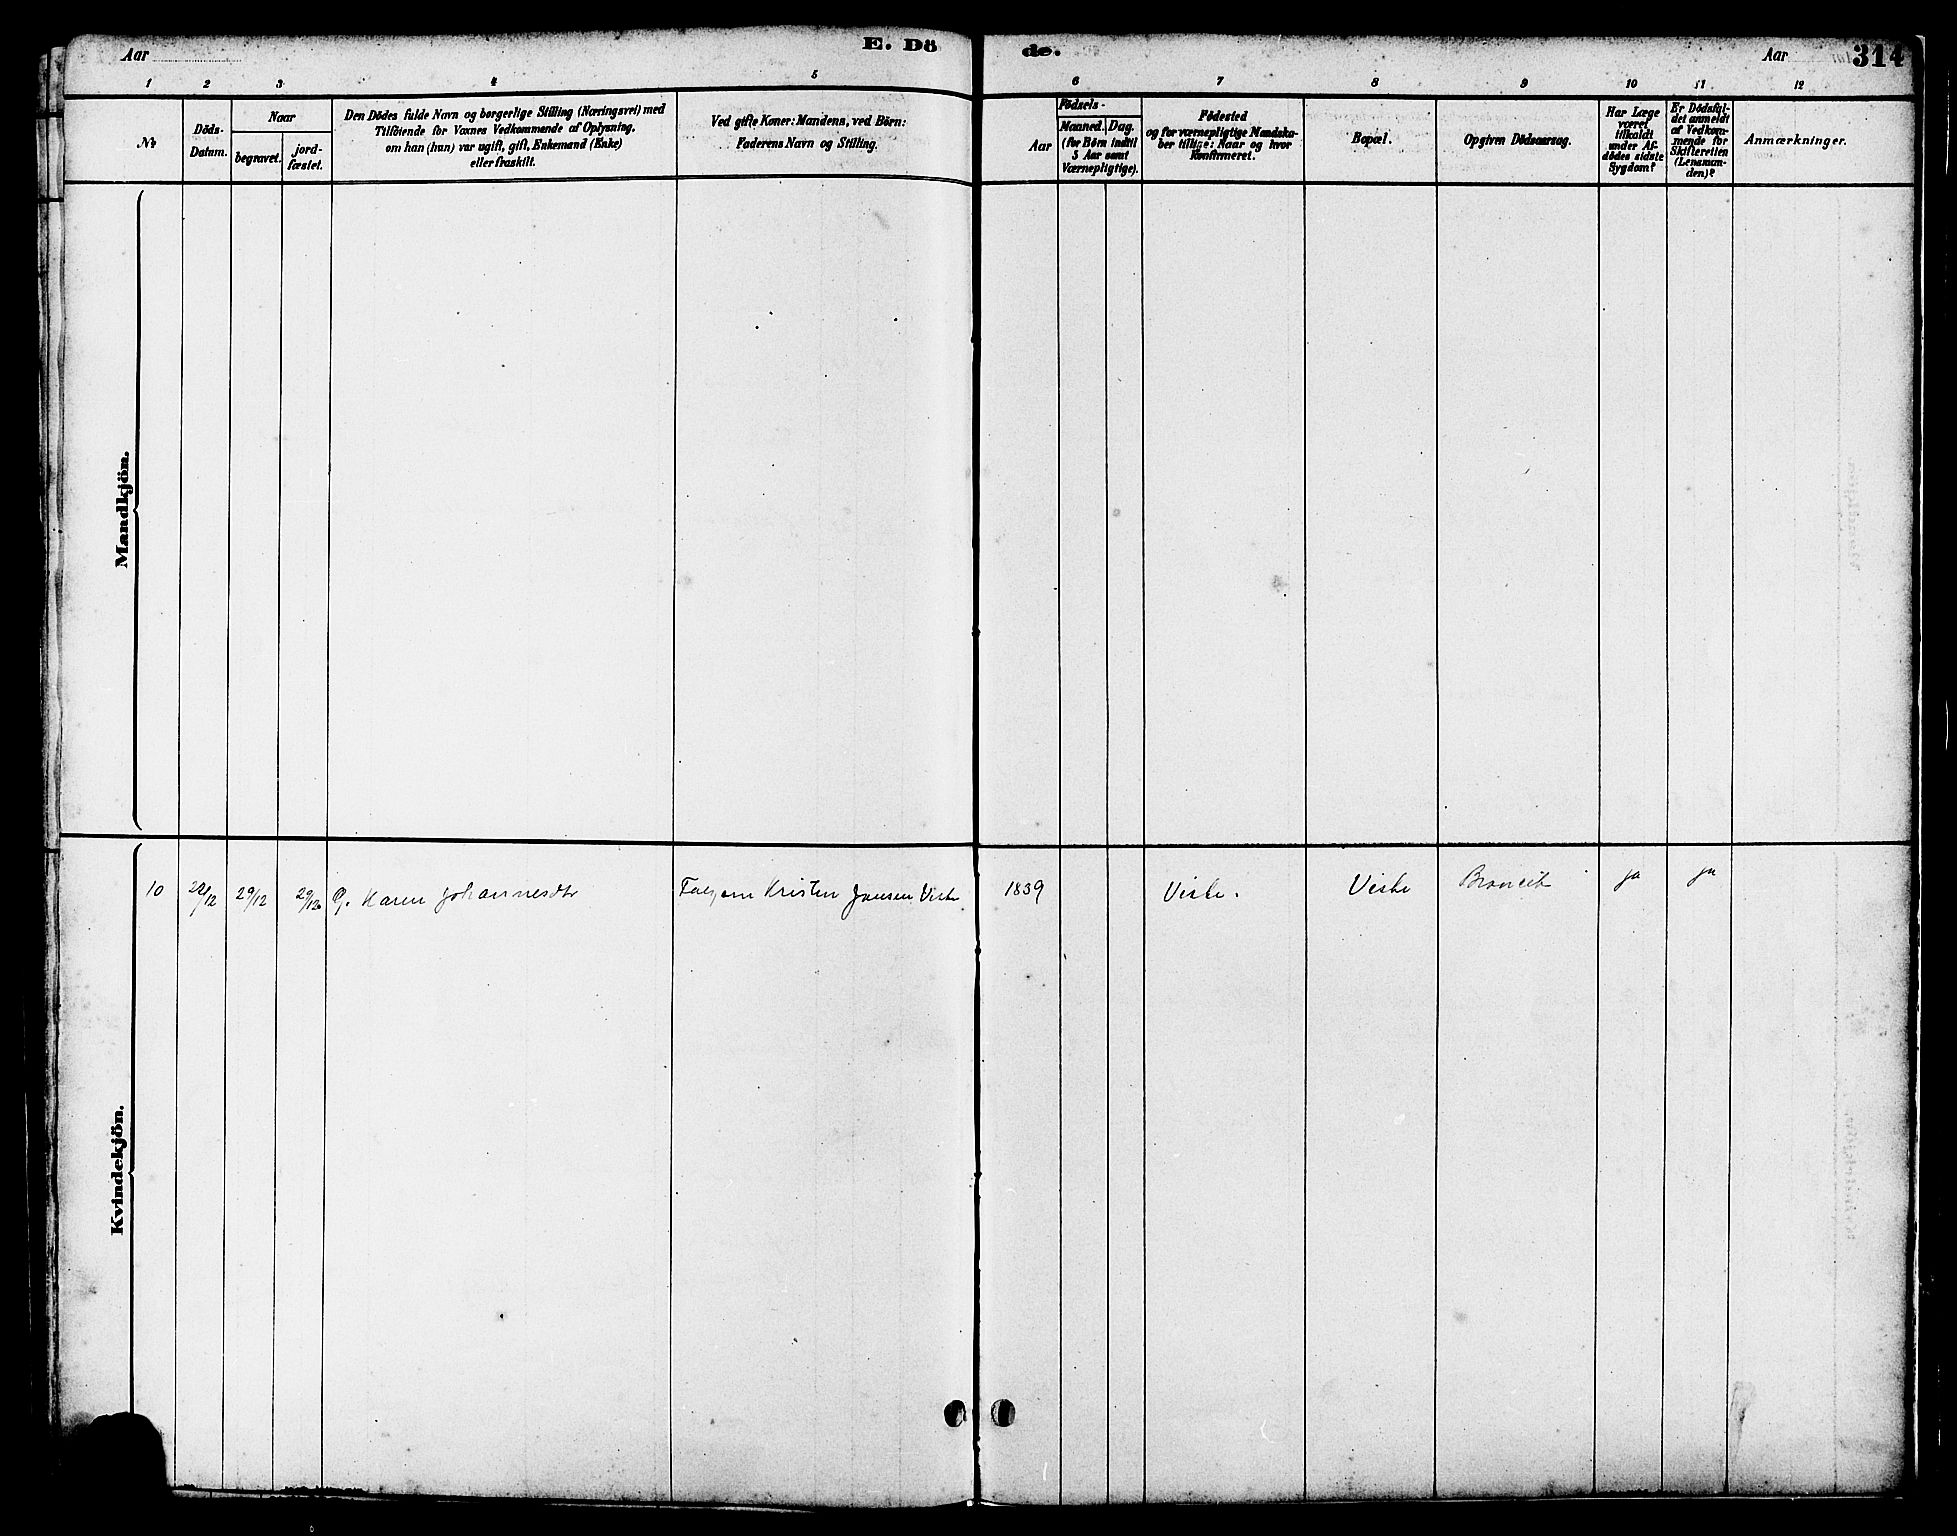 Aar
E. Dö
de.
Aar
314
1 2 3 4 5 6 7 8 9 10 11 12
No
Döds-
Datum.
Naar
begravet.
jord-
fæstet.
Den Dödes fulde Navn og borgerlige Stilling (Næringsvei) med
Tilföiende for Voxnes Vedkommende af Oplysning,
om han (hun) var ugift, gift, Enkemand (Enke)
eller fraskilt.
Ved gifte Koner: Mandens, ved Börn:
Faderens Navn og Stilling.
Aar
Födsels-
Maaned. Dag.
(for Börn indtil
5 Aar samt
Værnepligtige).
Födested
og for værnepligtige Mandska-
ber tillige: Naar og hvor
Konfirmeret.
Bopæl.
Opgiven Dödsaarsag.
Har Læge
været
tilkaldt
under Af-
dödes sidste
Sygdom?
Er Dödsfal-
det anmeldt
af Vedkom-
mende for
Skifteretten
(Lensman-
den)?
Anmærkninger.
Mandkjön.
10 29/12 29/12 G. Karen Johannesdtr Kristen Jansen Viste 1839 Viste. Viste ja ja
Kvindekjön.